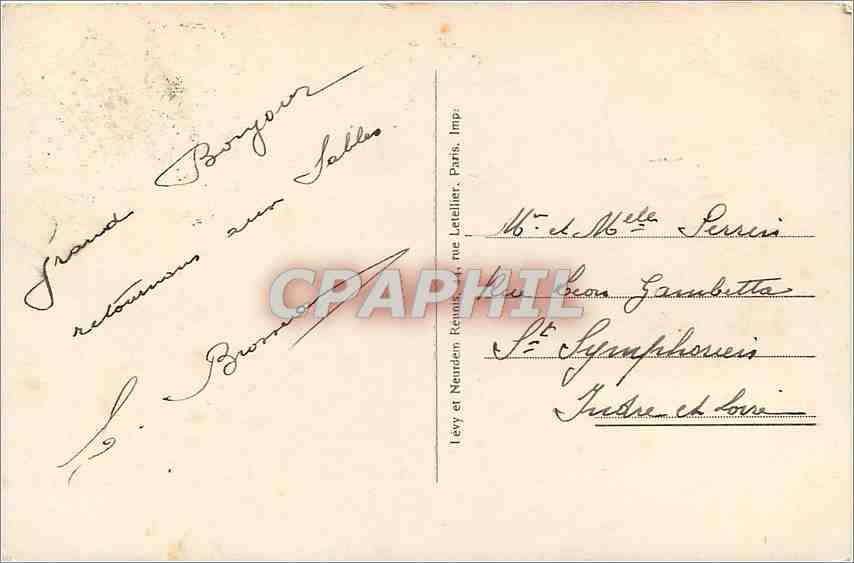 Grand Bonjour
retournons aux Sables.
Lévy et Neurdein Réunis, 44, rue Letellier, Paris. Imp:
CPAPHIL
Mr et Melle
Rue Léon Gambetta
St Symphorien
Indre et Loire